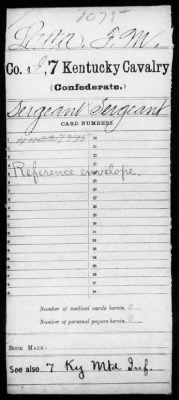 1075
F. M.
Co. I, 7 Kentucky Cavalry
(Confederate.)
Sergeant Sergeant
CARD NUMBERS.
Reference envelope.
Number of medical cards herein 0
Number of personal papers herein 0
BOOK MARK:
See also 7 Ky Mtd Inf.